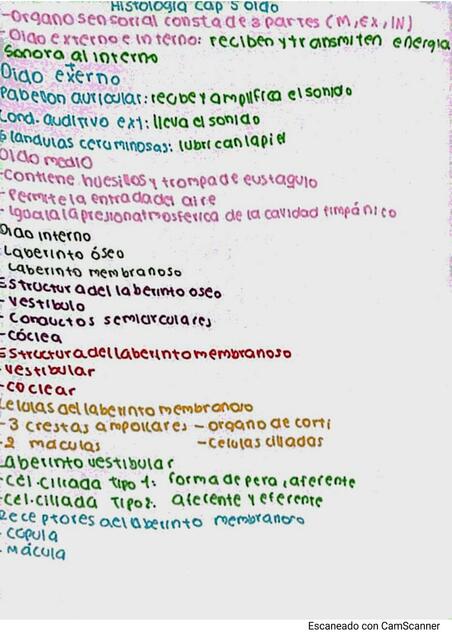 Histología cap 5 oido
-Organo sensorial consta de 3 partes (M, EX, IN)
-Oido externo e interno: reciben y transmiten energia
Sonora al interno
Oido externo
Pabellon auricular: recibe y amplifica el sonido
Cond. auditivo ext: lleva el sonido
Glandulas ceruminosas: lubrican la piel
Oido medio
-Contiene huesillos y trompa de eustaquio
-Permite la entrada del aire
-Iguala la presion atmosferica de la cavidad timpánico
Oido interno
Laberinto óseo
Laberinto membranoso
Estructura del laberinto oseo
-Vestibulo
-Conductos semicirculares
-cóclea
Estructura del laberinto membranoso
-vestibular
-coclear
Celulas del laberinto membranoso
-3 crestas ampollares -organo de corti
-2 maculas -celulas ciliadas
Laberinto vestibular
-Cél. ciliada tipo 1: forma de pera, aferente
-Cél. ciliada tipo 2: aferente y eferente
Receptores del laberinto membranoso
-Cúpula
-Mácula
Escaneado con CamScanner